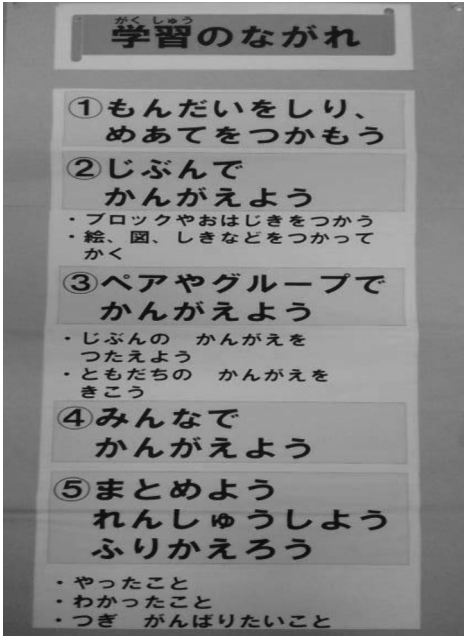 がくしゅう
学習のながれ
①もんだいをしり、
めあてをつかもう
②じぶんで
かんがえよう
・ブロックやおはじきをつかう
・絵、図、しきなどをつかって
かく
③ペアやグループで
かんがえよう
・じぶんの　かんがえを
つたえよう
・ともだちの　かんがえを
きこう
④みんなで
かんがえよう
⑤まとめよう
れんしゅうしよう
ふりかえろう
・やったこと
・わかったこと
・つぎ　がんばりたいこと